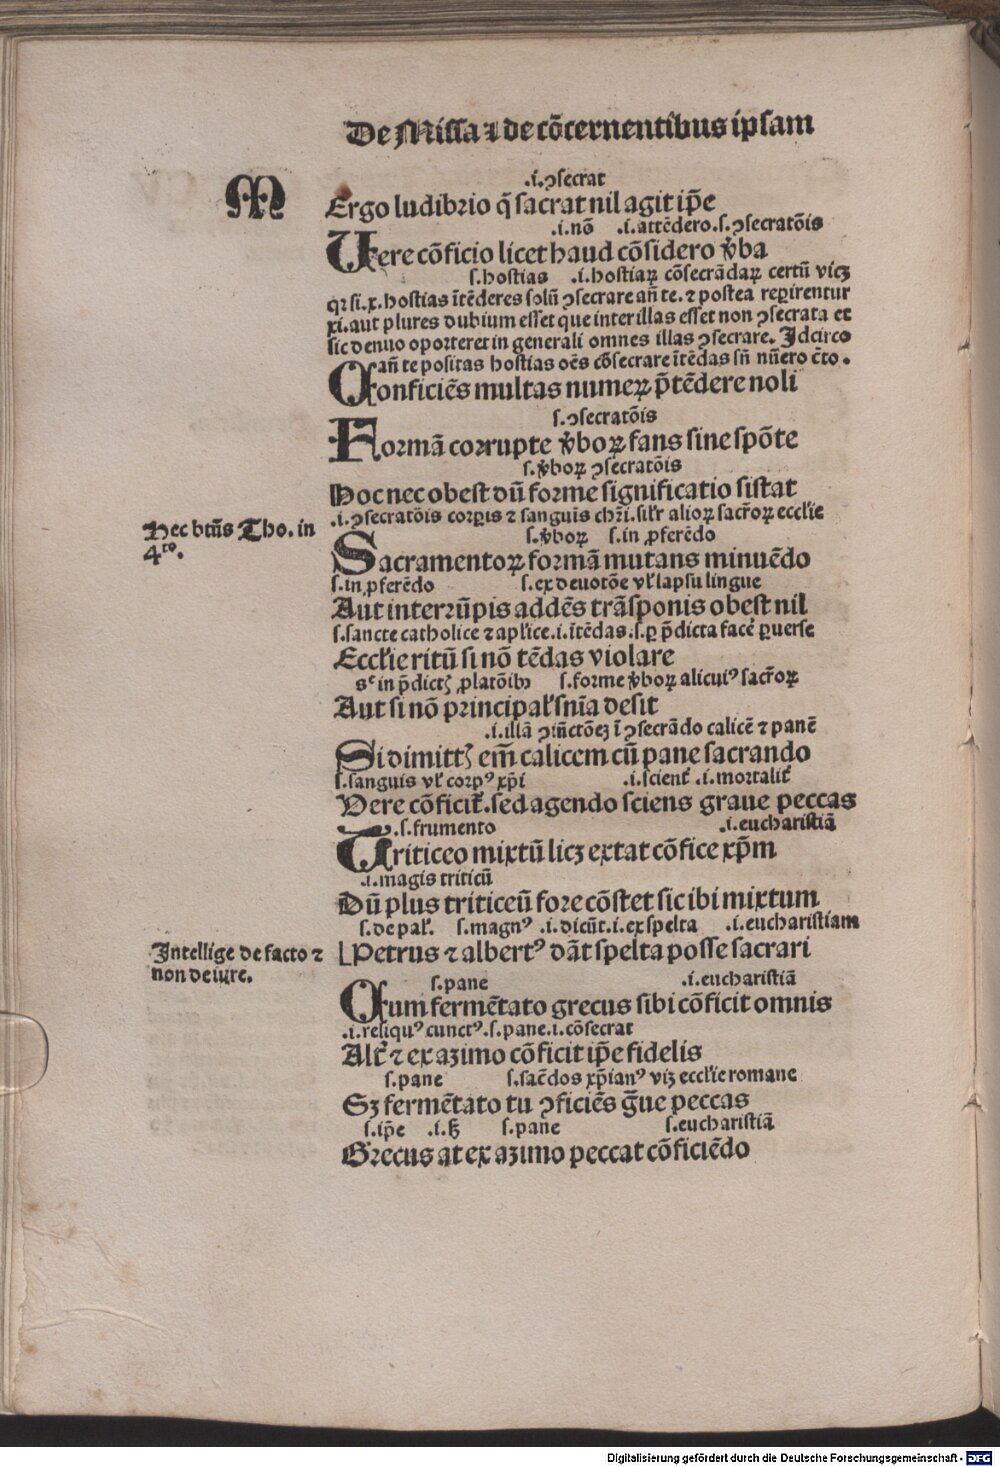 De Missa ⁊ de cõcernentibus ipsam
M
.i.ꝯsecrat
Ergo ludibrio q̃ sacrat nil agit ip̃e
.i.nõ .i.attẽdero.s.ꝯsecratõis
Uere cõficio licet haud cõsidero v̾ba
s.hostias .i.hostiaꝝ cõsecrãdaꝝ certũ vicꝫ
qꝛ si.x.hostias ĩtẽderes solũ ꝯsecrare añ te.⁊ postea reꝑirentur
xi.aut plures dubium esset que inter illas esset non ꝯsecrata et
sic denuo oporteret in generali omnes illas ꝯsecrare. Idcirco
añ te positas hostias oẽs cõsecrare ĩtẽdas sñ nũero c̃to.
Conficiẽs multas numeꝝ p̃tẽdere noli
s.ꝯsecratõis
Formã corrupte v̾boꝝ fans sine spõte
s.v̾boꝝ ꝯsecratõis
Hoc nec obest dũ forme significatio sistat
.i.ꝯsecratõis corꝑis ⁊ sanguĩs chr̃i.sil̾r alioꝝ sacr̃oꝝ eccl̾ie
Hec btũs Tho. in
4ᵗᵒ.
s.v̾boꝝ s.in ꝓferẽdo
Sacramentoꝝ formã mutans minuẽdo
s.in ꝓferẽdo s.ex deuotõe vl̾ lapsu lingue
Aut interrũpis addẽs trãsponis obest nil
s.sancte catholice ⁊ apl̾ice.i.ĩtẽdas.s.ꝑ p̃dicta facẽ ꝑuerse
Eccl̾ie ritũ si nõ tẽdas violare
sᶜ in p̃dictꝭ ꝓlatõibꝰ s.forme v̾boꝝ alicuiꝰ sacr̃oꝝ
Aut si nõ principal̾ sñia desit
.i.illã ꝯiũctõeꝫ ĩ ꝯsecrãdo calicẽ ⁊ panẽ
Si dimittꝭ em̃ calicem cũ pane sacrando
s.sanguis vl̾ corpꝰ xp̃i .i.scient̾ .i.mortalit̾
Vere cõficit̾.sed agendo sciens graue peccas
.s.frumento .i.eucharistiã
Triticeo mixtũ licꝫ extat cõfice xp̃m
.i.magis triticũ
Dũ plus triticeũ fore cõstet sic ibi mixtum
s.de pal̾. s.magnꝰ .i.dicũt.i.ex spelta .i.eucharistiam
Intellige de facto ⁊
non de iure.
Petrus ⁊ albertꝰ dãt spelta posse sacrari
s.pane .i.eucharistiã
Cum fermẽtato grecus sibi cõficit omnis
.i.reliquꝰ cunctꝰ.s.pane.i.cõsecrat
Alt̾ ⁊ ex azimo cõficit ip̃e fidelis
s.pane s.sacẽdos xp̃ianꝰ viꝫ eccl̾ie romane
Sꝫ fermẽtato tu ꝯficiẽs g̃ue peccas
s.ip̃e .i.sꝫ s.pane s.eucharistiã
Grecus at ex azimo peccat cõficiẽdo
Digitalisierung gefördert durch die Deutsche Forschungsgemeinschaft - DFG